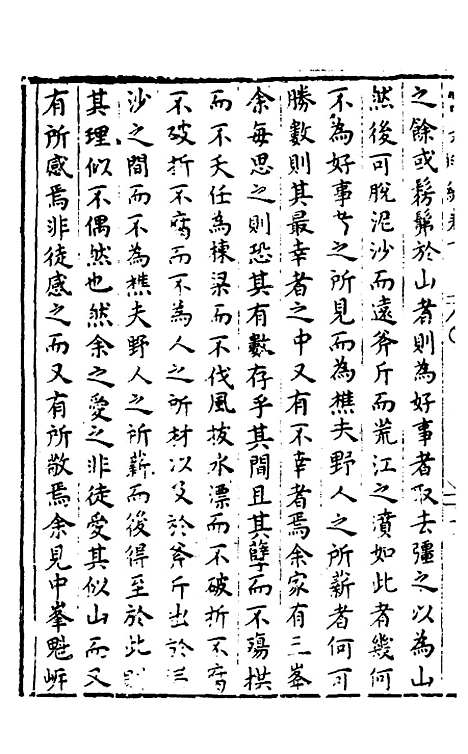 之餘或髣髴於山者則為好事者取去彊之以為山
然後可脫泥沙而遠斧斤而荒江之濆如此者幾何
不為好事者之所見而為樵夫野人之所薪者何可
勝數則其最幸者之中又有不幸者焉余家有三峯
余每思之則恐其有數存乎其間且其孽而不殤拱
而不夭任為棟梁而不伐風拔水漂而不破折不腐
不破折不腐而不為人之所材以及於斧斤出於
沙之間而不為樵夫野人之所薪而後得至於此
其理似不偶然也然余之愛之非徒愛其似山而又
有所感焉非徒感之而又有所敬焉余見中峯魁岸